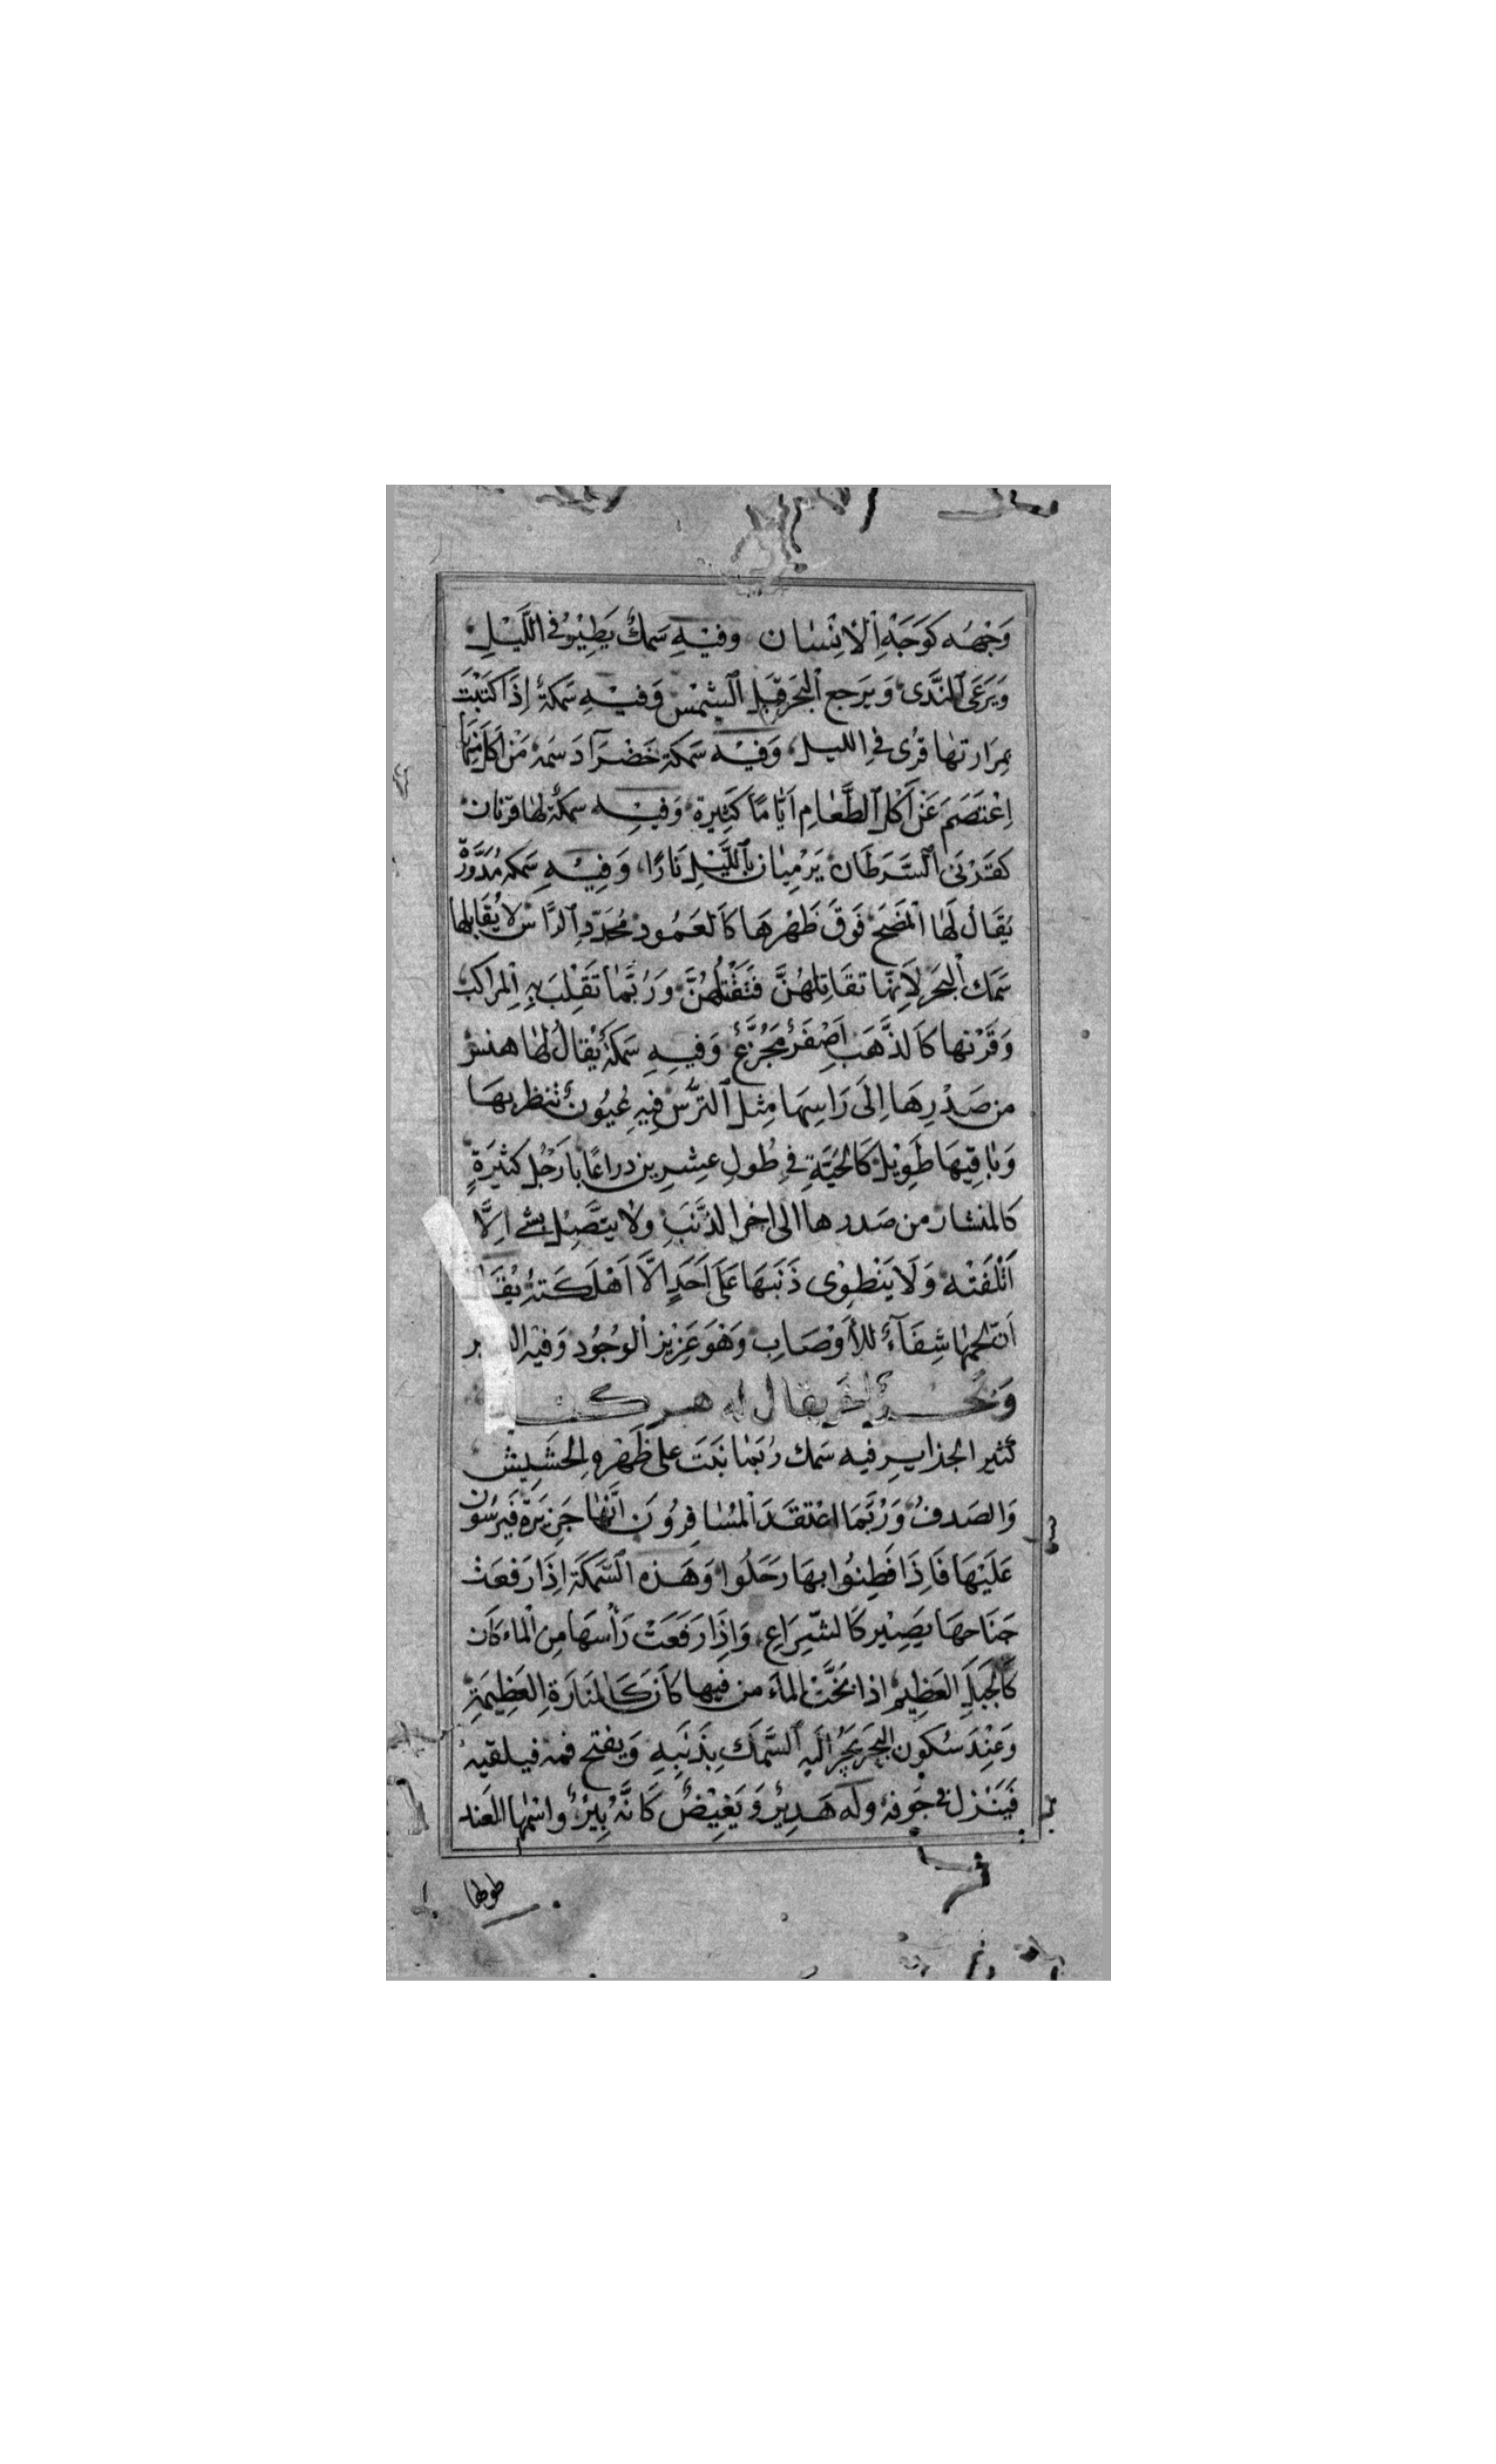 وَجْهُه كَوَجَهِ اِلْانِسْان وَفيْهِ سَمَكٌ يَطِيْرُ فى اللَّيْلِ
وَيَرَعَى اَلنَّدَى وَيَرجع اَلْبَحَر قَبِل اَلشَمْسِ وَفيْهِ سَمَكَةٌ اِذَا كَتَبْتَ
بِمرَارتهَا قرُى فى الليل وَفيْه سَمَكة خَضْرَآ دَسمَه مَنْ اَكَلَ مِنهَا
اِعْتَصَمَ عَنْ اَكْل اَلطَّعَامِ اَيَّامًا كَثِيرة وَفيه سَمكَة لهَا قرنان
كقَرْنَى اَلسَّرَطَان يَرْمِيَان بِاَللَّيْلِ نَارًا وَفِيْهِ سَمكه مُدَوَّرَّة
يُقَال لَهَا اَلمَضَحَ فَوقَ ظَهْرهَا كَاَلعَمُود مُحَدّدِ اَلرَّاس لايُقَابلها
سَمَك اَلْبحَر لاَنِهَا تقَاتلهُنَّ فَتَقْتُلُهُنَّ وَرُبَّمَا تَقَلِبَ بِهِ اِلْمراكب
وَقَرْنها كَاَلذَّهَب اَصِفَرُ مُجَزَّعُ وَفيهِ سَمَكَة يُقالُ لهَا هنس
من صَدْرِهَا اِلَى رَاسِهَا مِثل اَلترَّسْ فِيهِ عُيُونُ تنظر بهَا
وَبَاقِيهَا طَوِيْل كَالحَيَّةِ فى طُولِ عِشِرِين دراعًا بِاَرَجُل كَثيَرَةٍ
كالمنشار من صَدرها الى اخرالدَنَبَ ولا يَتَّصِل بشى اِلَّا
اَتْلَفَتْه وَلَا يَنْطِوْى ذَنَبهَا عَلَى اَحَدٍ اِلَّا اَهْلَكَتهُ يُقَال
اَن لحمهَا شِفَآءُ لِلأَوْصَاب وَهْوَ عَزِيْز اَلوُجُود وَفيْه العنبر
وَبَحْر اَخَر يقال له هركند
كَثير الجذايرِ فيه سَمك رُبمَا نَبَتَ على ظَهْرهِ اِلحَشِيش
وَالصَدفُ وَرُبَّمَا اعتقدَ اَلمُسَافِرُونَ اَنَّهَا جَزِيَرة فَيرسُون
عَلَيْهَا فَاِذَا فَطِنُوا بهَا رَحَلُوا وَهَذه اَلسَّمَكَة اِذَا رَفعَتْ
جَنَاحهَا يَصِيْر كَالشّرَاعِ وَاِذَا رَفَعَتْ رَأسهَا مِن اَلماء كَان
كَاَلجَبَلِ العَظِيم اذا نَخَّتْ الماءَ من فيها كَاَن كَالمنَارَة اِلعَظِيمَةِ
وَعِنْدَ سُكون البحَرِ يَجُر اِلَيهِ اَلسَّمَكَ بِذَنَبِهِ وَيفتح فمه فيلقيه
فَيَنْزل فى جَوفهُ وله هَديرٌ وَيَغِيْضُ كَاَنَّهُ بِيرُ واسمها العند
طوطا